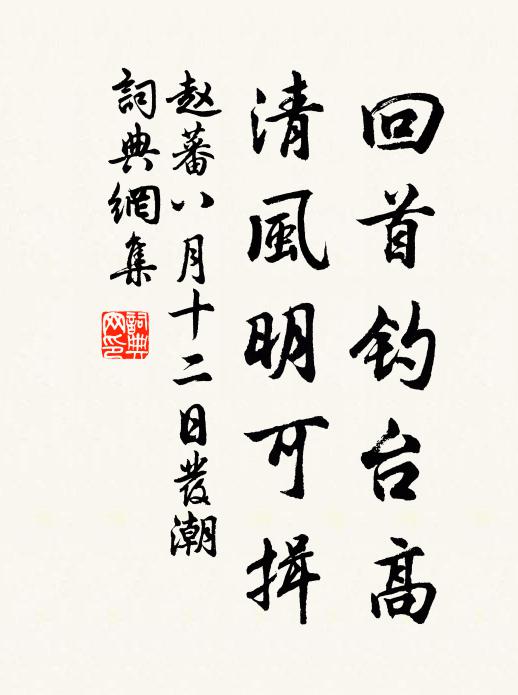 回首钓台高
清風明可揖
赵蕃八月十二日发潮
詞典網集
詞典网印